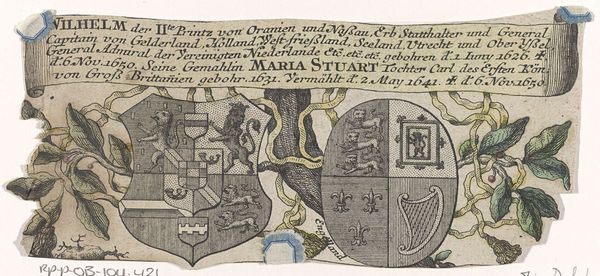 WILHELM der IIte Printz von Oranien und Naßau, Erb Statthalter und General
Capitain von Gelderland, Holland, West-frießland, Seeland, Utrecht und Ober Yßel
General Admiral der Vereinigten Niederlande Etc. etc. etc. gebohren d. 1 Iuny 1626. ✠
d. 6 Nov. 1650. Seine Gemahlin MARIA STUART Tochter Carl des Ersten Kön.
von Groß Brittanien gebohr. 1631. Vermählt d. 2 May 1641. ✠ d.
Engelland
RP-P-OB-104.421